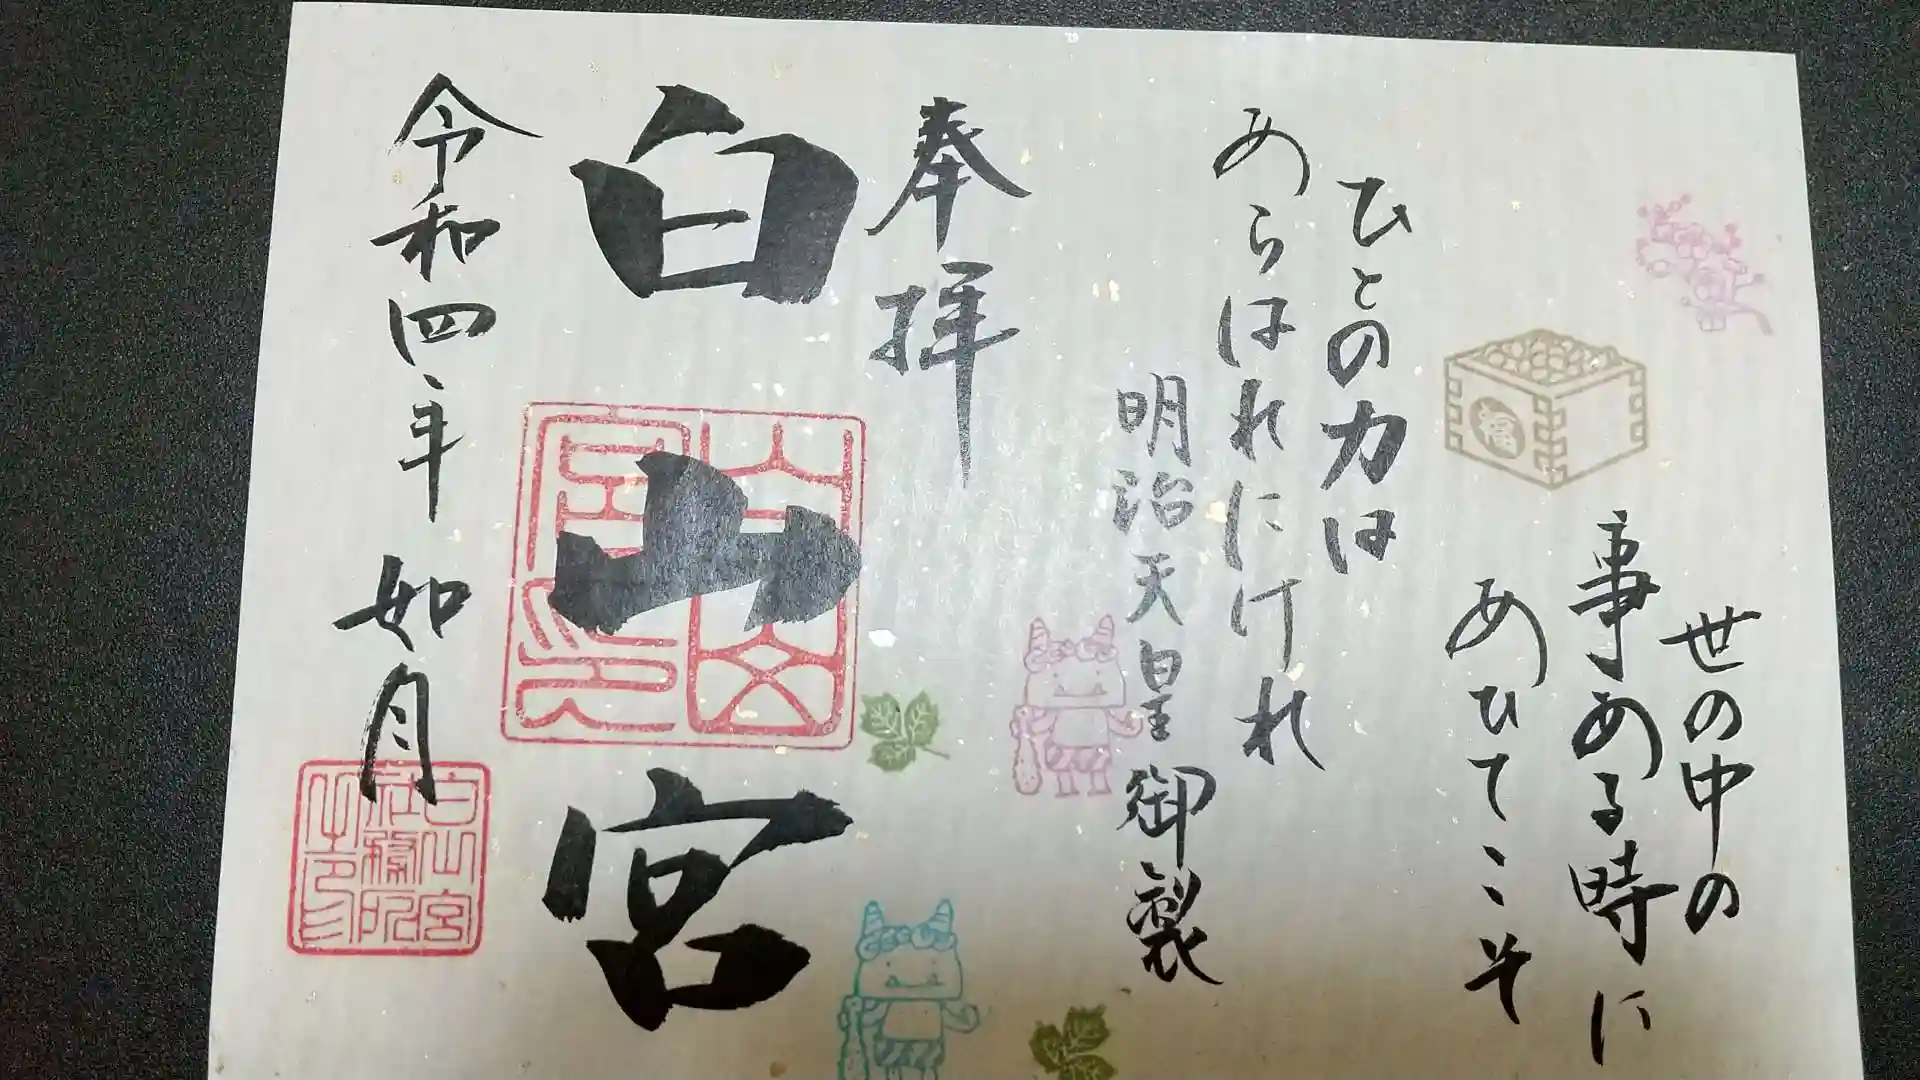 世の中の
事ある時に
あひてこそ
ひとの力は
あらはれにけれ
明治天皇御製
福
奉拝
白山宮
令和四年如月